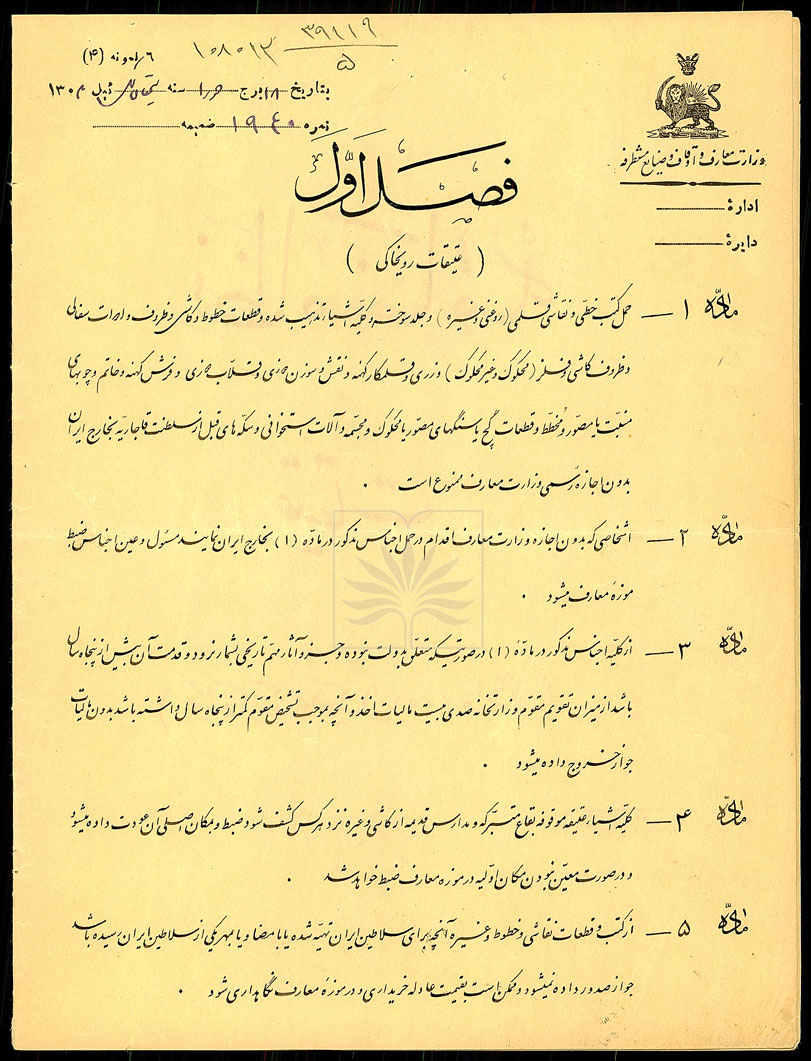 ۳۹۱۱۹
۵
۱۰۸۰۱۳
(۴)
وزارت معارف و اوقاف و صنایع مستظرفه
اداره
دایره
بتاریخ ۱۸ برج سنه ئیل ۱۳۰۴
نمره ۱۹۴۰ ضمیمه
فصل اول
( عتیقات روی خاکی )
ماده ۱ — حمل کتب خطی و نقاشی قلمی (روغنی و غیره) و جلد سوخته و کلیه اشیاء تذهیب شده و قطعات خطوط و کاشی و ظروف و ادوات سفالی
و ظروف کاشی و فلز (محکوک و غیر محکوک) و زری و قلمکار کهنه و نقش و سوزن دوزی و قلاب دوزی و فرش کهنه و خاتم و چوبهای
منبت یا مصور و مخطط و قطعات گچ یا سنگهای مصور یا محکوک و مجسمه و آلات استخوانی و سکه های قبل از سلطنت قاجاریه بخارج ایران
بدون اجازه رسمی وزارت معارف ممنوع است .
ماده ۲ — اشخاصی که بدون اجازه وزارت معارف اقدام در حمل اجناس مذکور در ماده (۱) بخارج ایران نمایند مسئول و عین اجناس ضبط
موزه معارف میشود .
ماده ۳ — از کلیه اجناس مذکور در ماده (۱) در صورتیکه متعلق بدولت نبوده و جزو آثار مهم تاریخی بشمار نرود و قدمت آن بیش از پنجاه سال
باشد از میزان تقویم مقوم وزارتخانه صدی بیست مالیات اخذ و آنچه بموجب تشخیص مقوم کمتر از پنجاه سال داشته باشد بدون مالیات
جواز خروج داده میشود .
ماده ۴ — کلیه اشیاء عتیقه موقوفه بقاع متبرکه و مدارس قدیمه از کاشی و غیره نزد هر کس کشف شود ضبط و بمکان اصلی آن عودت داده میشود
و در صورت معین نبودن مکان اولیه در موزه معارف ضبط خواهد شد .
ماده ۵ — از کتب و قطعات نقاشی و خطوط و غیره آنچه برای سلاطین ایران تهیه شده یا با امضا و یا بمهر یکی از سلاطین ایران رسیده باشد
جواز صدور داده نمیشود و ممکن است بقیمت عادله خریداری و در موزه معارف نگاهداری شود .